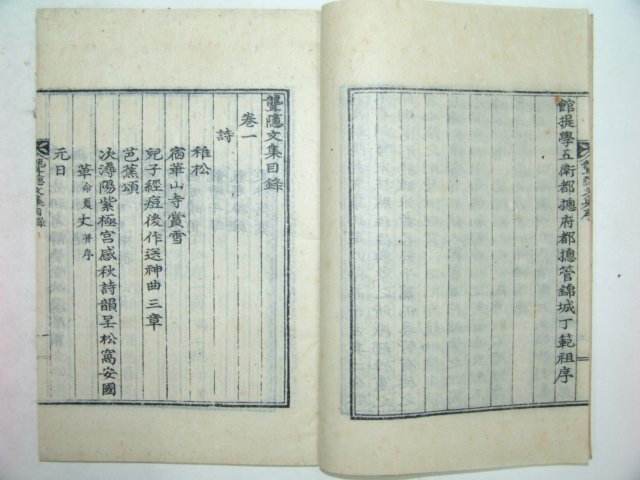 館提學五衛都摠府都摠管錦城丁範祖序
聾隱文集目錄
卷一
詩
稚松
宿華山寺賞雪
兒子經痘後作送神曲三章
芭蕉頌
次潯陽紫極宮感秋詩韻呈松窩安國
華命夏丈幷序
元日
聾隱文集目錄
一